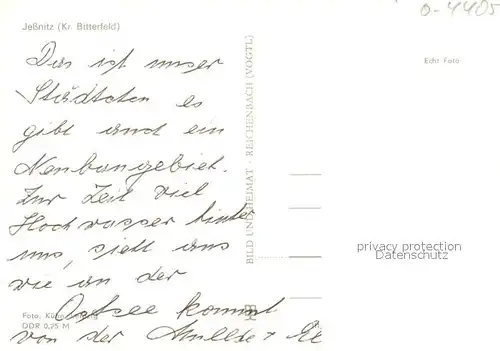 o-4405
Jeßnitz (Kr. Bitterfeld)
Echt Foto
Das ist unser
Städtchen es
gibt auch ein
Neubaugebiet.
Zur Zeit viel
Hochwasser hinter
uns, sieht aus
wie an der
Ostsee kommt
von der Mulde +
BILD UND HEIMAT · REICHENBACH (VOGTL)
privacy protection
Datenschutz
Foto:
DDR 0,25 M